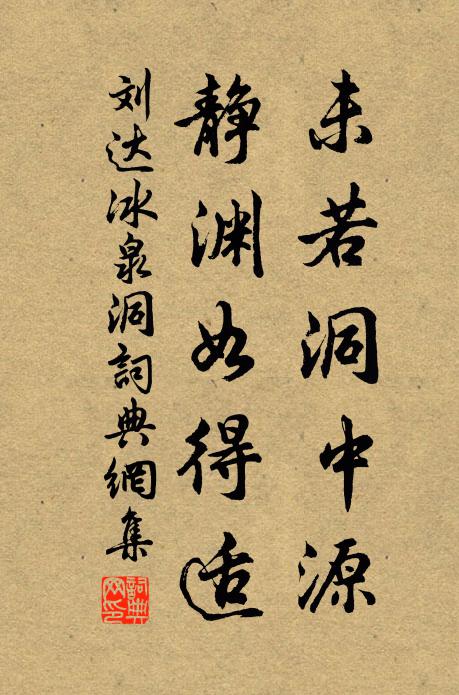 未若洞中源
静渊如得适
刘达冰泉洞詞典網集
詞典網印